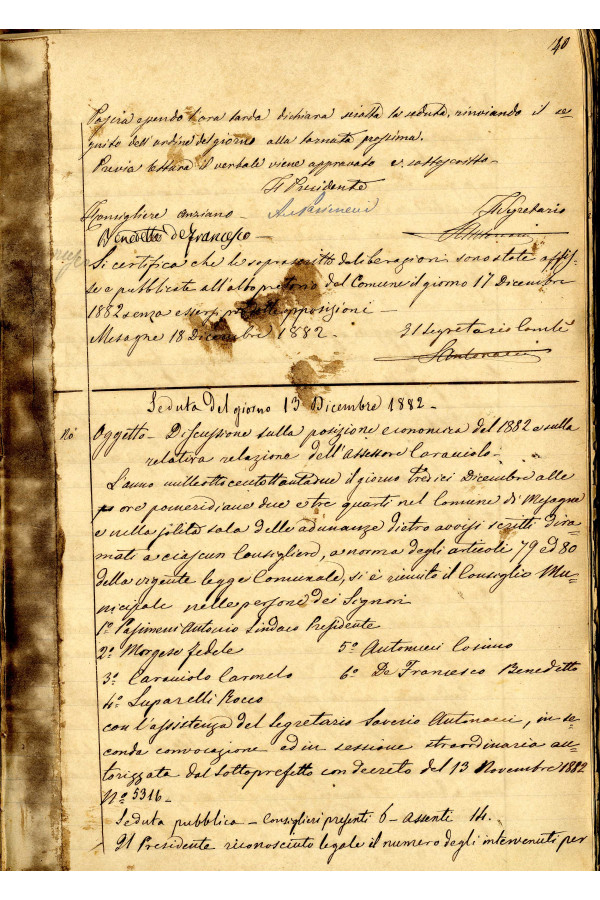 40
Poscia essendo l'ora tarda dichiara sciolta la seduta, rinviando il se=
guito dell'ordine del giorno alla tornata prossima.
Previa lettura il verbale viene approvato e sottoscritto—
Il Presidente
Il Consigliere anziano — A. Pasimeni Il Segretario
Benedetto de Francesco — S. Antonucci
Si certifica che le soprascritte deliberazioni sono state affis=
se e pubblicate all'albo pretorio del Comune il giorno 17 Dicembre
1882 senza essersi opposizioni —
Mesagne 18 Dicembre 1882. — Il Segretario Comle
S. Antonucci
Seduta del giorno 13 Dicembre 1882 —
No Oggetto — Discussione sulla posizione economica del 1882 e sulla
relativa relazione dell'Assessore Caravolo —
L'anno milleottocentottantadue il giorno tredici Dicembre alle
ore pomeridiane due e tre quarti nel Comune di Mesagne
e nella solita sala delle adunanze dietro avvisi scritti dira=
mati a ciascun Consigliere, a norma degli articoli 79 ed 80
della vigente legge Comunale, si è riunito il Consiglio Mu=
nicipale nelle persone dei Signori
1º Pasimeni Antonio Sindaco Presidente
2º Morgese Fedele 5º Antonucci Cosimo
3º Caraviolo Carmelo 6º De Francesco Benedetto
4º Luparelli Rocco
con l'assistenza del Segretario Saverio Antonucci, in se=
conda convocazione ed in sessione straordinaria au=
torizzata dal Sottoprefetto con decreto del 13 Novembre 1882
Nº 5316 —
Seduta pubblica — Consiglieri presenti 6 — Assenti 14.
Il Presidente riconosciuto legale il numero degli intervenuti per